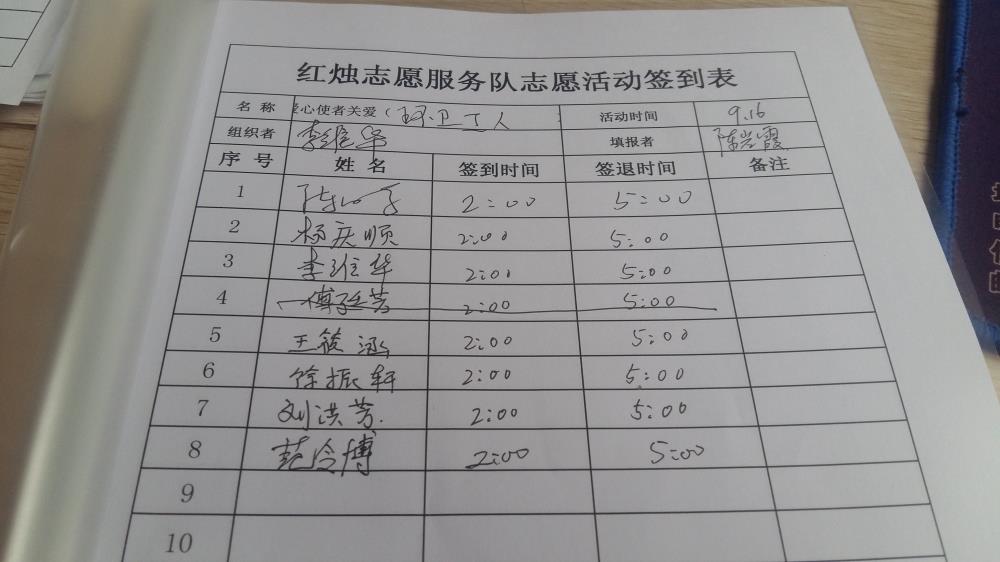 红烛志愿服务队志愿活动签到表
名 称 爱心使者关爱（环卫工人 活动时间 9.16
组织者 李维华 填报者
序 号 姓 名 签到时间 签退时间 备注
1 2:00 5:00
2 杨庆顺 2:00 5:00
3 李维华 2:00 5:00
4 2:00 5:00
5 王筱涵 2:00 5:00
6 徐振轩 2:00 5:00
7 刘洪芳. 2:00 5:00
8 范令博 2:00 5:00
9
10